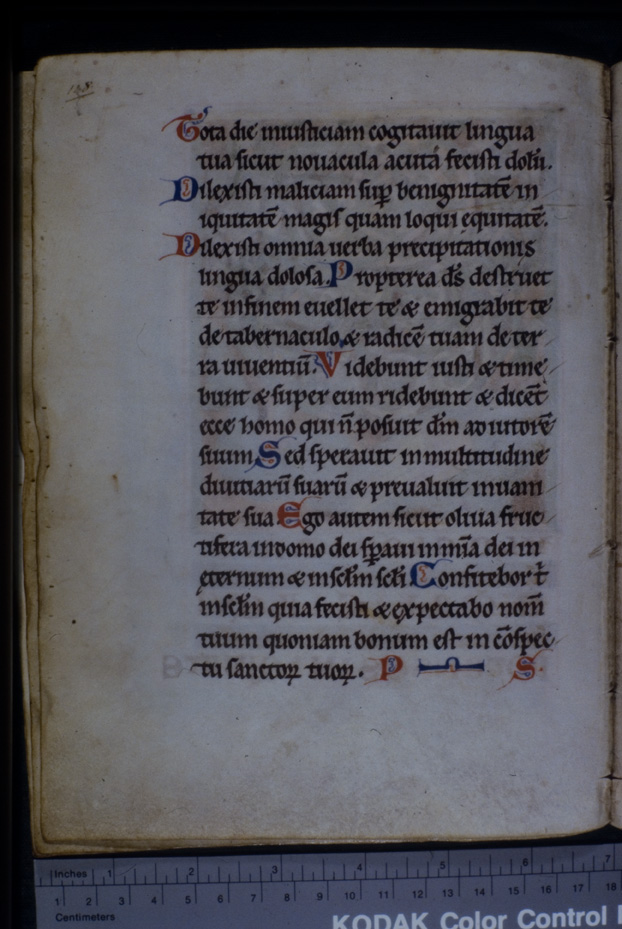 Tota die iniusticiam cogitauit lingua
tua sicut nouacula acuta fecisti dolū.
Dilexisti maliciam sup̄ benignitatē in
iquitatē magis quam loqui equitatē.
Dilexisti omnia uerba precipitationis
lingua dolosa. Propterea d̄s destruet
te infinem euellet te & emigrabit te
de tabernaculo & radicē tuam de ter
ra uiuentiū. Videbunt iusti & time
bunt & super eum ridebunt & dicēt
ecce homo qui n̄ posuit dn̄m adiutorē
suum Sed sperauit inmultitudine
diuitiarū suarū & preualuit inuani
tate sua Ego autem sicut oliua fruc
tifera indomo dei sp̄aui inmīa dei in
ęternum & insclm̄ scl̄i Confitebor t̄
insclm̄ quia fecisti & expectabo nom̄
tuum quoniam bonum est in cōspec
tu sanctoꝝ tuoꝝ. P S.
Inches 1 2 3 4 5 6 7
1 2 3 4 5 6 7 8 9 10 11 12 13 14 15 16 17 18
Centimeters
KODAK Color Control